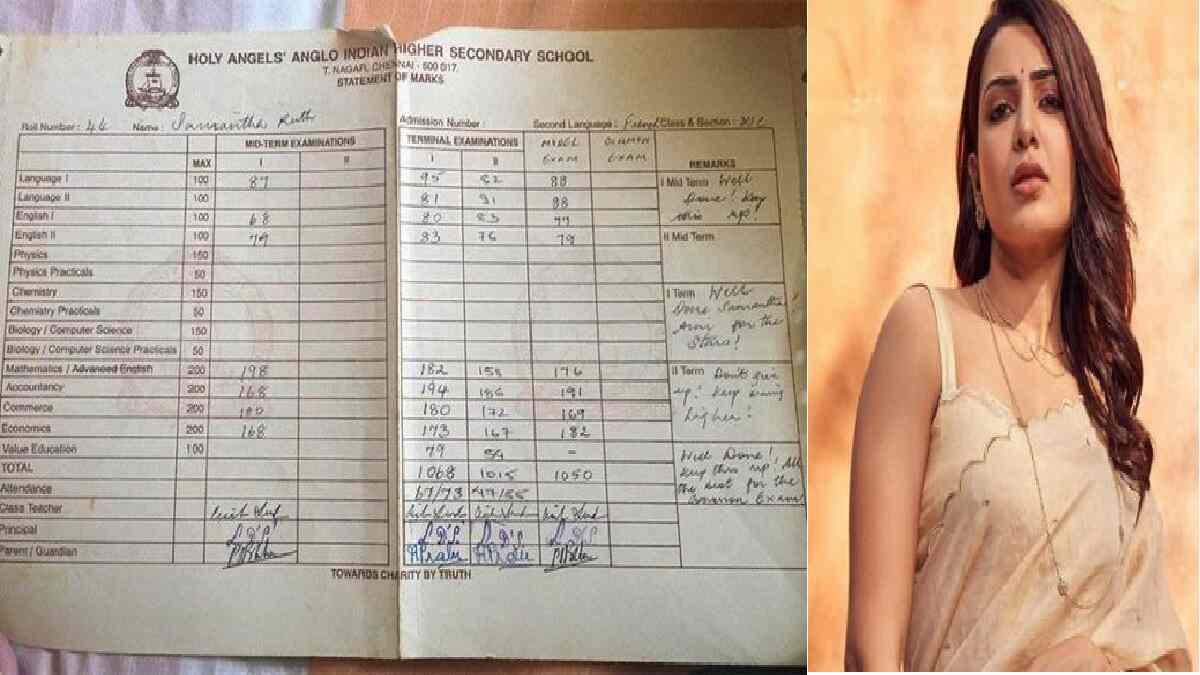 HOLY ANGELS' ANGLO INDIAN HIGHER SECONDARY SCHOOL
T. NAGAR, CHENNAI - 600 017.
STATEMENT OF MARKS
Roll Number : 44 Name : Samantha Ruth Admission Number Second Language : French Class & Section :
MID-TERM EXAMINATIONS TERMINAL EXAMINATIONS MODEL EXAM COMMON EXAM REMARKS
MAX I II I II
Language I 100 87 95 82 88 I Mid Term Well
Language II 100 81 91 98 Done! Keep
English I 100 68 80 83 this up!
English II 100 79 83 76 79 II Mid Term
Physics 150
Physics Practicals 50
Chemistry 150 I Term Well
Chemistry Practicals 50 Done Samantha!
Biology / Computer Science 150 for the
Biology / Computer Science Practicals 50 Stars!
Mathematics / Advanced English 200 198 182 158 176 II Term Don't give
Accountancy 200 168 194 186 191 up! Keep
Commerce 200 180 172 169 higher!
Economics 200 168 173 167 182
Value Education 100 79 - Well Done!
TOTAL 1068 1015 1050 Keep this up! All
Attendance 67/73 the best for the
Class Teacher Common Exam
Principal
Parent / Guardian
TOWARDS CHARITY BY TRUTH